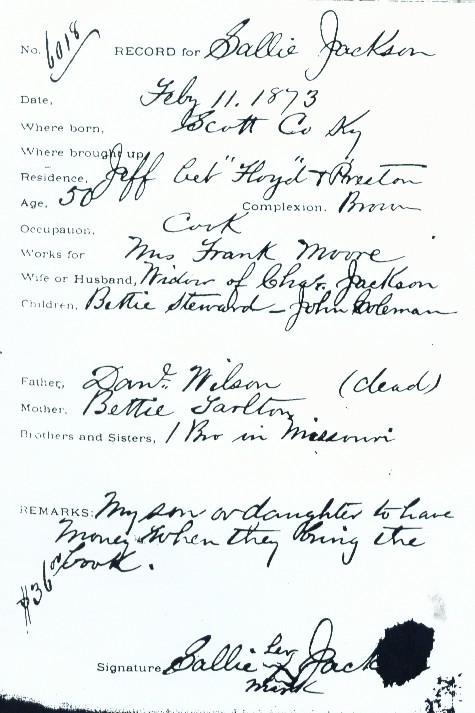 No. 6018 RECORD for Sallie Jackson
Date, Feby 11. 1873
Where born, Scott Co Ky
Where brought up,
Residence, Jeff bet "Floyd" & Preston
Age, 50 Complexion. Brown
Occupation, Cook
Works for Mrs Frank Moore
Wife or Husband, Widow of Chas. Jackson
Children, Bettie Steward - John Coleman
Father, Danl. Wilson (dead)
Mother, Bettie Tarlton
Brothers and Sisters, 1 Bro in Missouri
REMARKS: My son or daughter to have
Money when they bring the
book.
$36
Signature Sallie her X Jack
mark